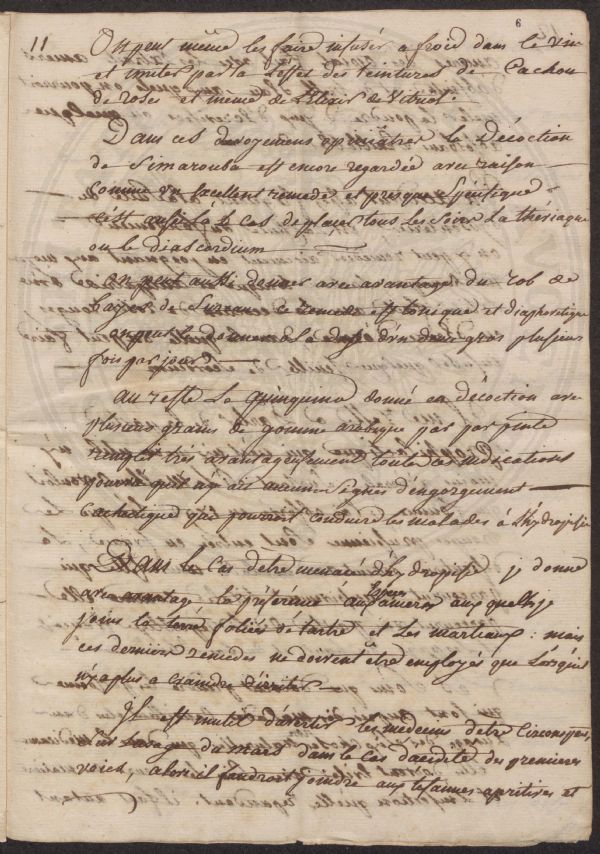 6
11
On peut même les faire infuser a froid dans le vin
et imiter par la l'effet des teintures de Cachou
de roses et même de l'Elixir de Vitriol.
Dans ces devoyements opiniatres la Décoction
de Simarouba est encore regardée avec raison
comme un excellent remede et presque Spécifique
c'est aussi là le cas de placer tous les Soirs La thériaque
ou le diascordium
on peut aussi donner avec avantage du rob de
bayes de Sureau ce remede est tonique et diaphoretique
on peut le donner à la dose d'un deux gros plusieurs
fois par jour
au reste Le quinquina donné en décoction avec
plusieurs grains de gomme arabique par par pinte
remplit très avantageusement toutes ces indications
pourvu qu'il n'y ait aucuns Signes d'engorgement
Cachectique qui pourroit conduire les malades à l'hydropisie
Dans les Cas d'etre menacé d'hydropisie je donne
avec avantage la préférence aux amers aux quels je
joins la terre foliée de tartre et Les martiaux : mais
ces derniers remedes ne doivent être employés que Lorsqu'il
n'y a plus a craindre
Il est inutil d'avertir les medecins d'etre Circonspects
Sur L'usage du mars dans le cas d'acidité des premieres
voies alors il faudroit joindre aux tisannes aperitives et